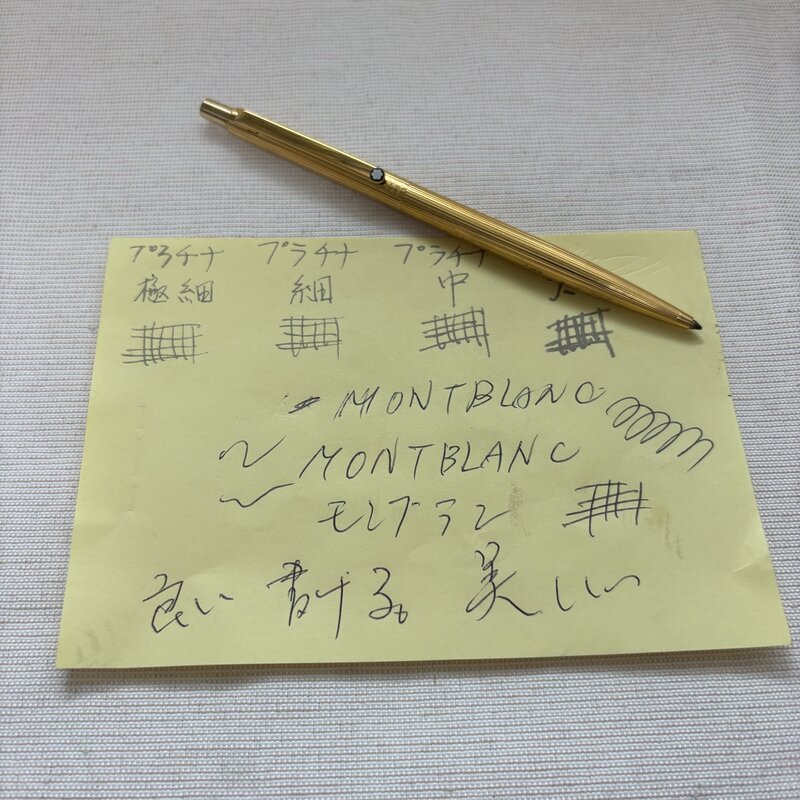 プラチナ プラチナ プラチナ
極細 細 中
MONTBLANC
MONTBLANC
モンブラン
良い 書ける。 美しい